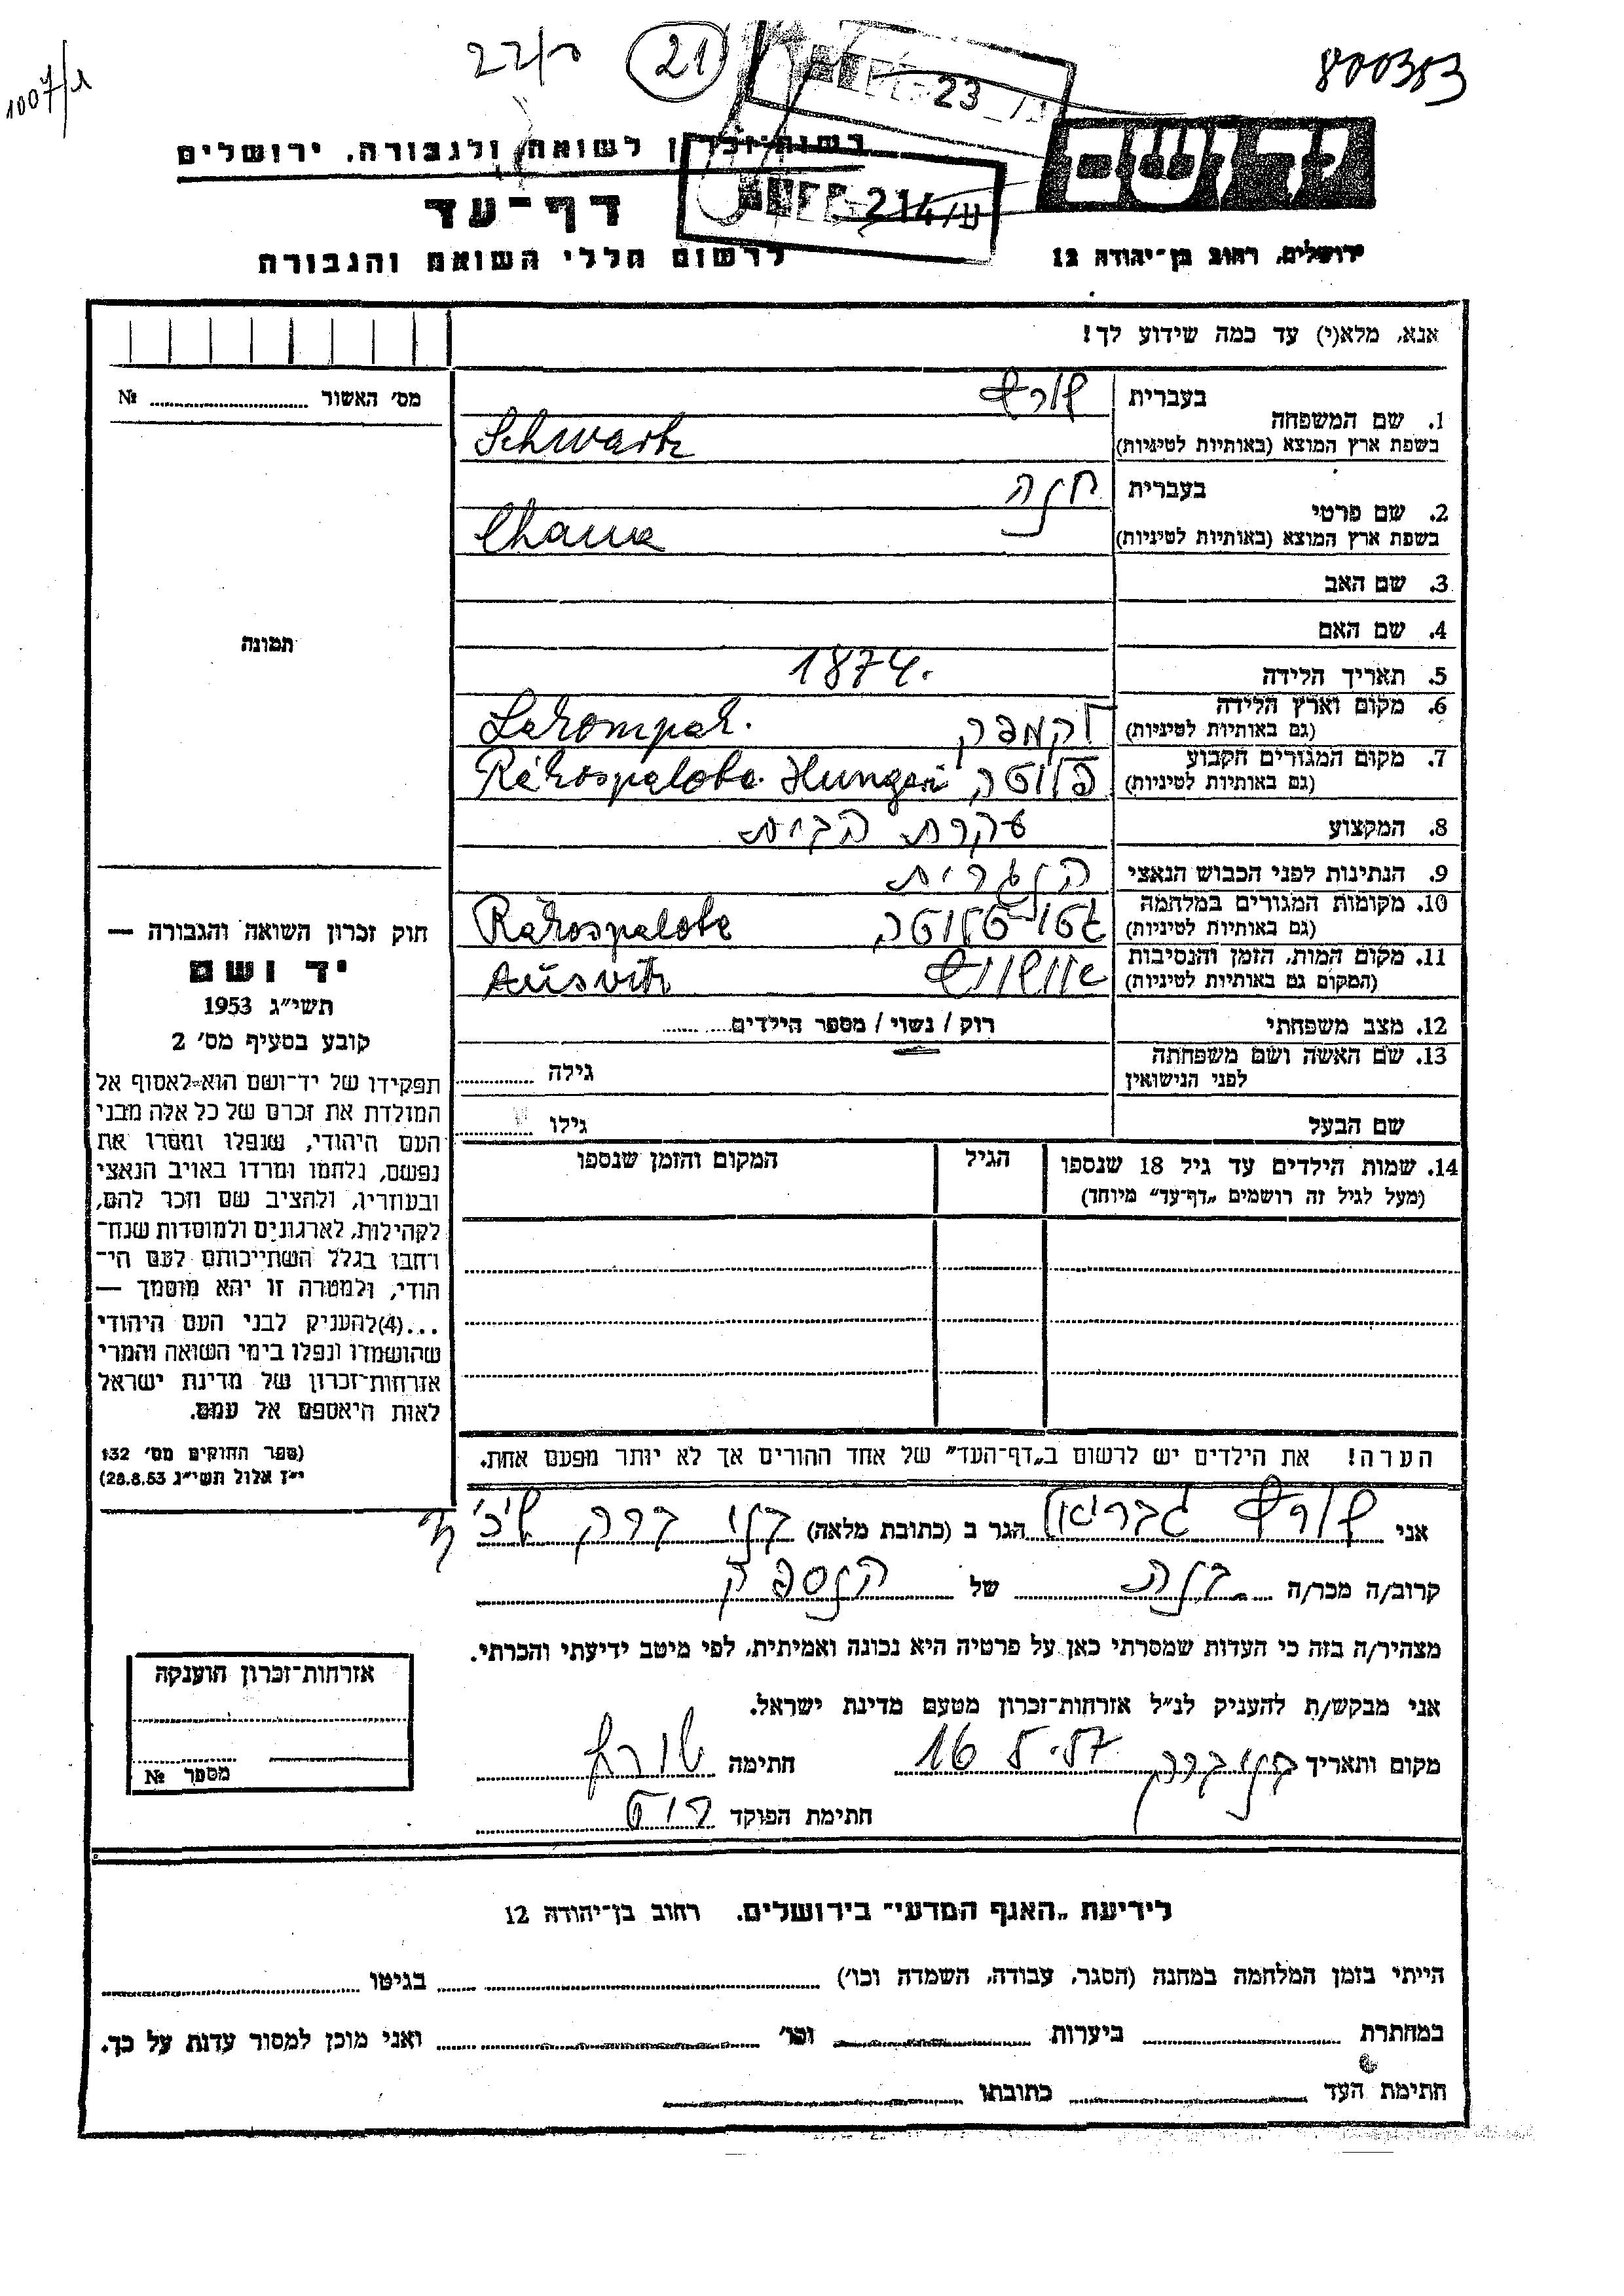 1007/1
22/0
21
800353
23
יד ושם
רשות־זכרון לשואה ולגבורה, ירושלים
214/ש
דף־עד
ירושלים, רחוב בן־יהודה 12
לרשום חללי השואה והגבורה
אנא, מלא(י) עד כמה שידוע לך!
מס׳ האשור № 
בעברית שורץ
1. שם המשפחה
בשפת ארץ המוצא (באותיות לטיניות) Schwartz
בעברית חנה
2. שם פרטי
בשפת ארץ המוצא (באותיות לטיניות) Chana
3. שם האב
4. שם האם
תמונה
5. תאריך הלידה 1874.
6. מקום וארץ הלידה
(גם באותיות לטיניות) לקמפק Lakompak.
7. מקום המגורים הקבוע
(גם באותיות לטיניות) פלוטה Rákospalota Hungari
8. המקצוע עקרת הבית
9. הנתינות לפני הכבוש הנאצי הונגרית
10. מקומות המגורים במלחמה
(גם באותיות לטיניות) גטו פלוטה Rákospalota
11. מקום המות, הזמן והנסיבות
(המקום גם באותיות לטיניות) אושוויץ Ausvitz
12. מצב משפחתי רוק / נשוי / מספר הילדים
13. שם האשה ושם משפחתה
לפני הנישואין גילה
שם הבעל גילו
14. שמות הילדים עד גיל 18 שנספו הגיל המקום והזמן שנספו
(מעל לגיל זה רושמים „דף־עד״ מיוחד)
חוק זכרון השואה והגבורה —
יד ושם
תשי״ג 1953
קובע בסעיף מס׳ 2
תפקידו של יד־ושם הוא לאסוף אל
המולדת את זכרם של כל אלה מבני
העם היהודי, שנפלו ומסרו את
נפשם, נלחמו ומרדו באויב הנאצי
ובעוזריו, ולהציב שם וזכר להם,
לקהילות, לארגונים ולמוסדות שנח־
רחבו בגלל השתייכותם לעם הי־
הודי, ולמטרה זו יהא מוסמך —
...(4) להעניק לבני העם היהודי
שהושמדו ונפלו בימי השואה והמרי
אזרחות־זכרון של מדינת ישראל
לאות היאספם אל עמם.
(ספר החוקים מס׳ 132
י״ז אלול תשי״ג 28.8.53)
הערה! את הילדים יש לרשום ב„דף־העד״ של אחד ההורים אך לא יותר מפעם אחת.
אני שורץ גבריאל הגר ב (כתובת מלאה) בני ברק
קרוב/ה מכר/ה של
מצהיר/ה בזה כי העדות שמסרתי כאן על פרטיה היא נכונה ואמיתית, לפי מיטב ידיעתי והכרתי.
אני מבקש/ת להעניק לנ״ל אזרחות־זכרון מטעם מדינת ישראל.
מקום ותאריך בני ברק 16 5.57 חתימה שורץ
חתימת הפוקד
אזרחות־זכרון הוענקה
מספר №
לידיעת „האגף המדעי״ בירושלים, רחוב בן־יהודה 12
הייתי בזמן המלחמה במחנה (הסגר, עבודה, השמדה וכו׳) בגיטו
במחתרת ביערות וכו׳ ואני מוכן למסור עדות על כך.
חתימת העד כתובתו